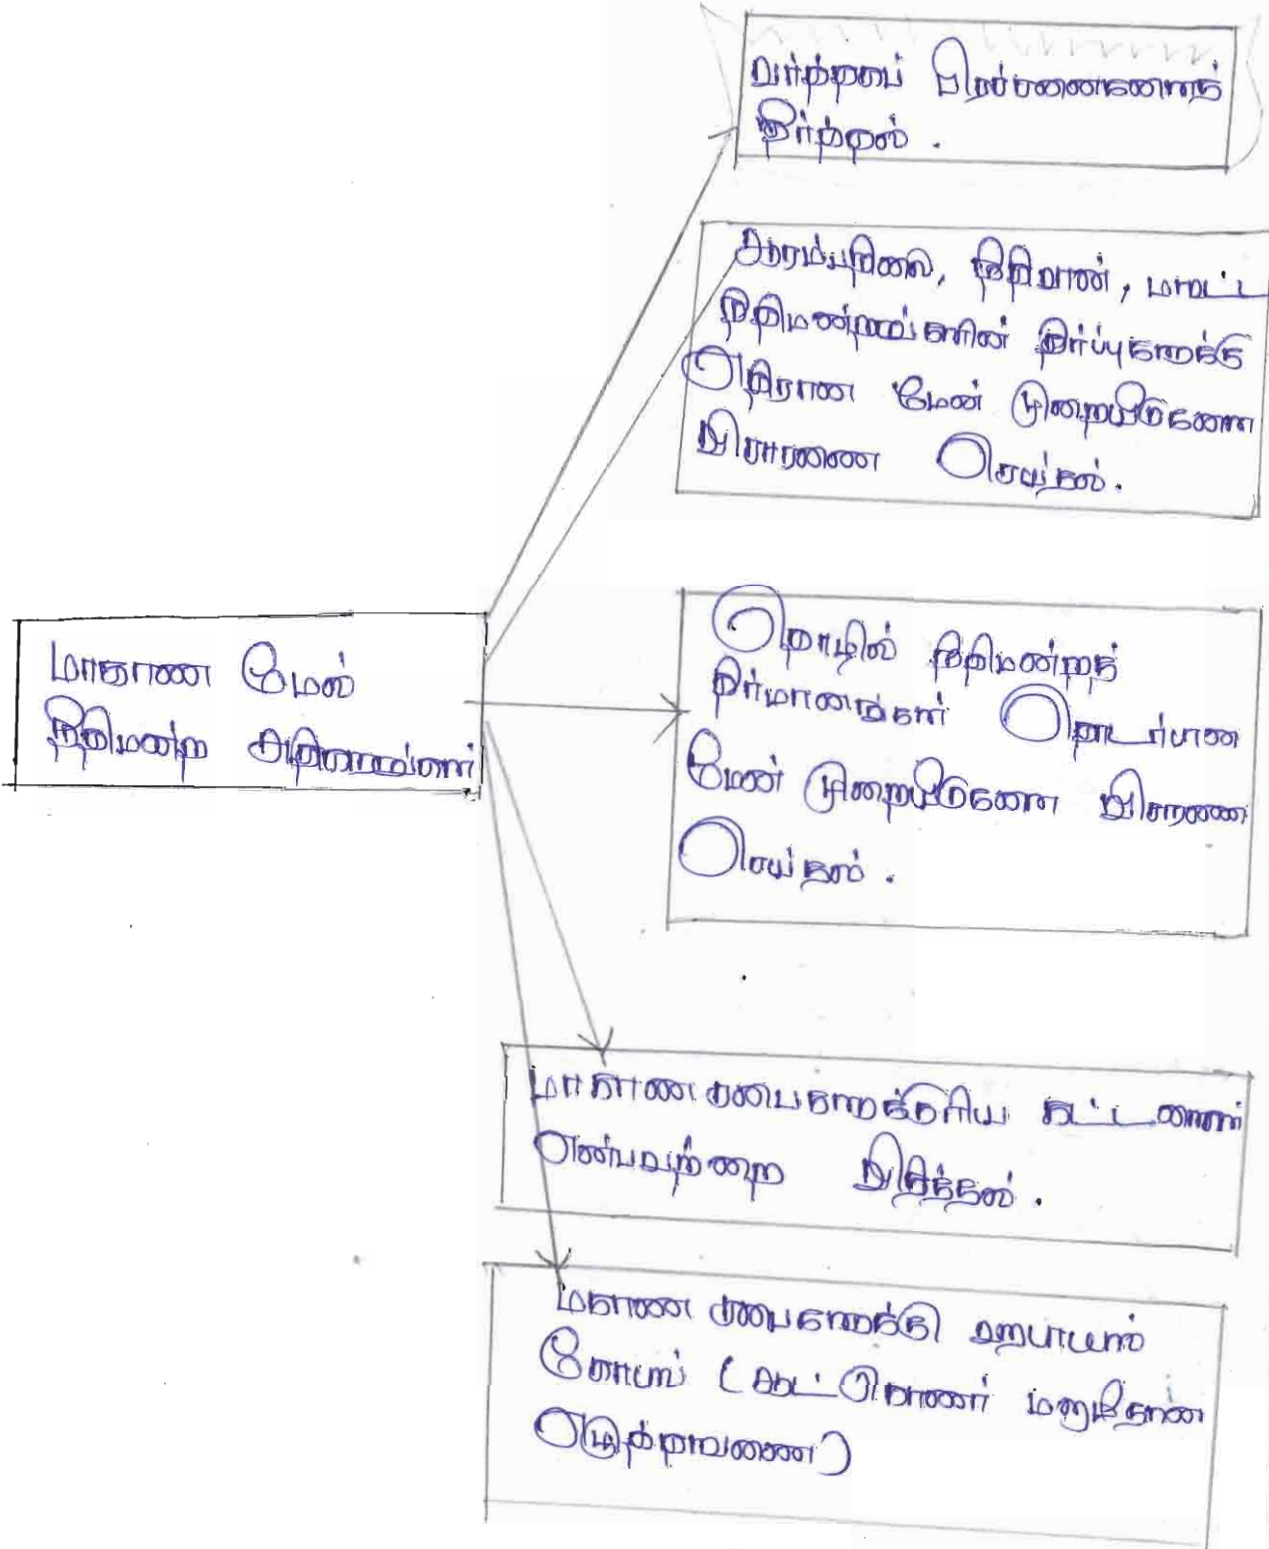 மாகாண மேல்
நீதிமன்ற அதிகாரங்கள்
வர்த்தகப் பிரச்சனைகளைத்
தீர்த்தல் .
ஆரம்பநிலை, நீதிவான், மாவட்ட
நீதிமன்றங்களின் தீர்ப்புகளுக்கு
எதிரான மேன் முறையீடுகளை
விசாரணை செய்தல்.
தொழில் நீதிமன்றத்
தீர்மானங்கள் தொடர்பான
மேன் முறையீடுகளை விசாரணை
செய்தல் .
மாகாண சபைகளுக்குரிய கட்டளைகள்
என்பவற்றை விதித்தல் .
மகாண சபைகளுக்கு
கோபஸ் (ஆட்கொணர்
எழுத்தாவணை)